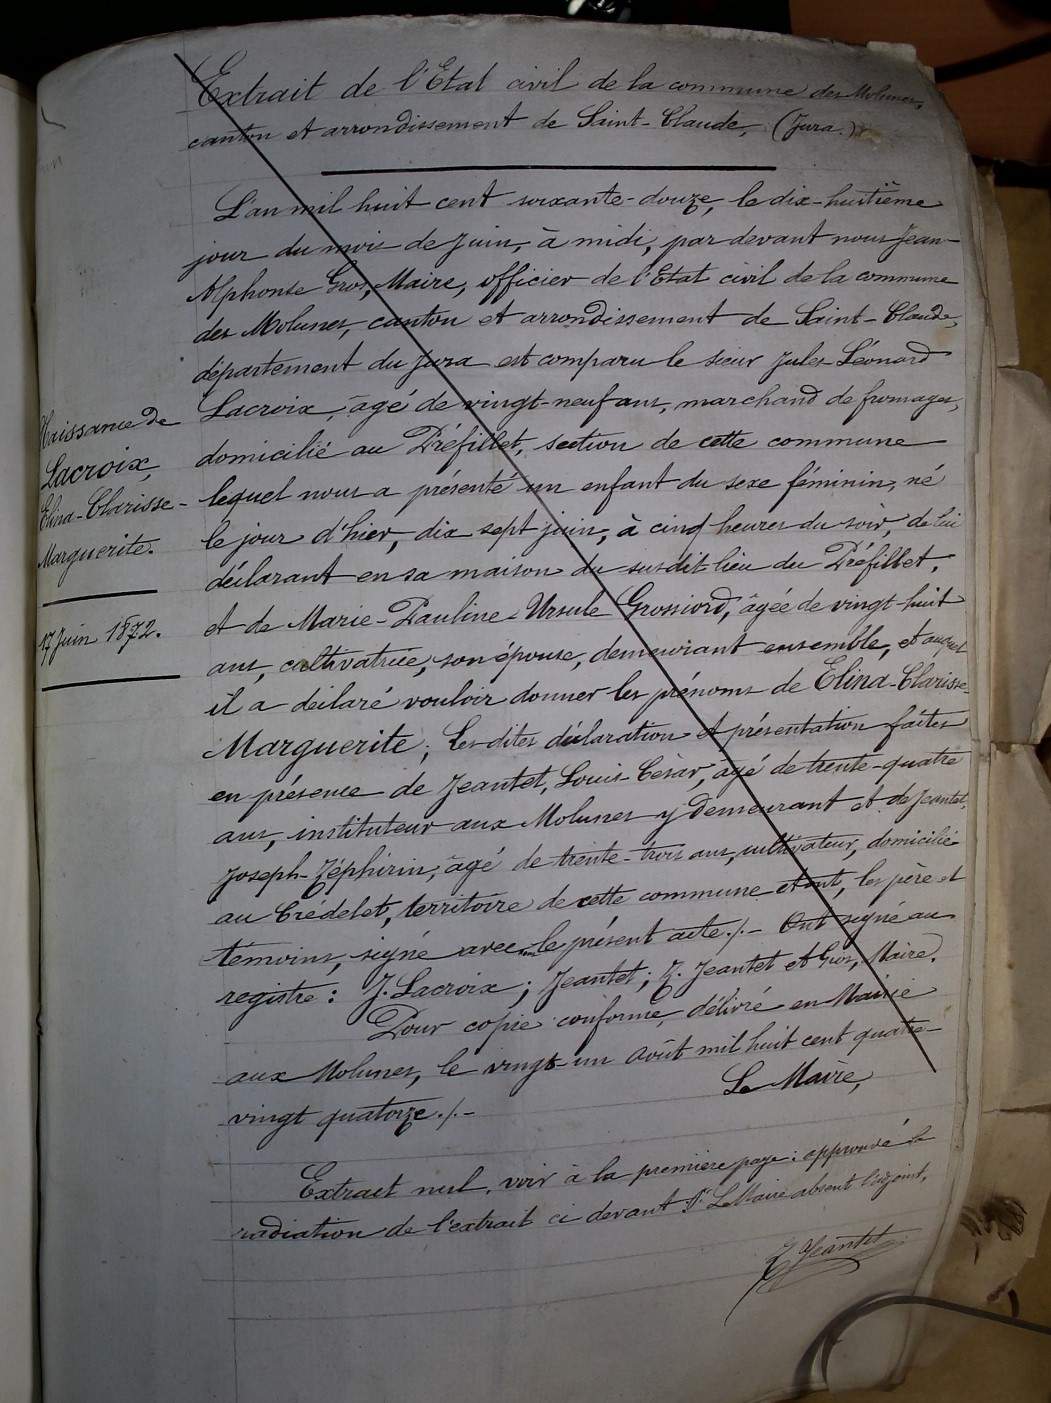 Extrait de l'Etat civil de la commune des Molunes,
canton et arrondissement de Saint-Claude, (Jura.)
L'an mil huit cent soixante-douze, le dix-huitième
jour du mois de Juin, à midi, par devant nous Jean-
Alphonse Gros, Maire, officier de l'Etat civil de la commune
des Molunes, canton et arrondissement de Saint-Claude,
département du Jura est comparu le sieur Jules Léonard
Lacroix, âgé de vingt-neuf ans, marchand de fromages,
domicilié au Préfillet, section de cette commune
lequel nous a présenté un enfant du sexe féminin, né
le jour d'hier, dix sept juin, à cinq heures du soir, de lui
déclarant en sa maison du susdit lieu du Préfillet,
et de Marie-Pauline-Ursule Grossiord, âgée de vingt huit
ans, cultivatrice, son épouse, demeurant ensemble, et auquel
il a déclaré vouloir donner les prénoms de Elina-Clarisse-
Marguerite; Les dites déclaration et présentation faites
en présence de Jeantet, Louis-César, âgé de trente-quatre
ans, instituteur aux Molunes y demeurant et de Jeantet,
Joseph-Zéphirin, âgé de trente-trois ans, cultivateur, domicilié
au Crédelet, territoire de cette commune et ont, les père et
témoins, signé avec le présent acte./.- Ont signé au
registre: J. Lacroix; Jeantet; Z. Jeantet et Gros, Maire.
Pour copie conforme, délivré en Mairie
aux Molunes, le vingt-un Août mil huit cent quatre-
vingt quatorze./.-
Le Maire,
Extrait nul, voir à la première page: approuvé la
radiation de l'extrait ci devant Pr Le Maire absent l'adjoint,
Z Jeantet
Naissance de
Lacroix,
Elina-Clarisse-
Marguerite.
17 Juin 1872.